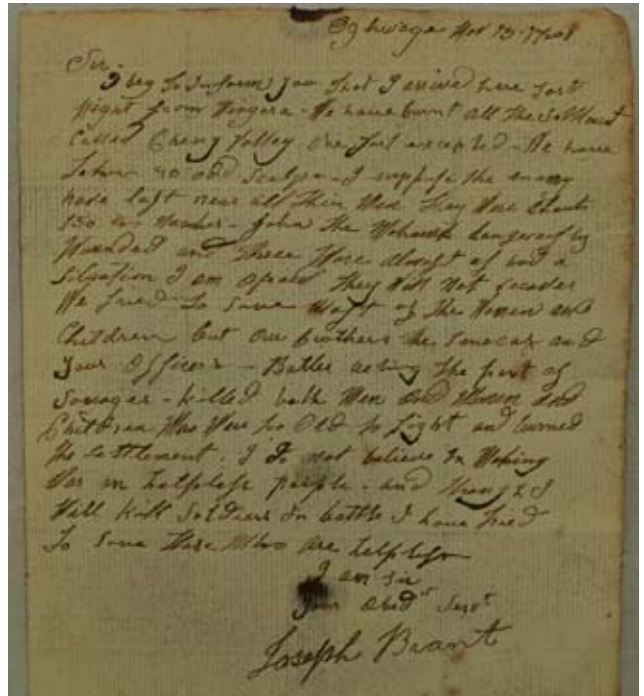 Oghwaga Nov 13 - 1778
Sir
I beg to Inform you that I arrived here last
Night from Niagara - We have burnt all the Settlement
Called Cherry Valley the fort excepted - We have
taken 40 odd Scalps - I suppose the enemy
have lost near all their Men they Were about
150 in Number - John the Mohawk dangerously
Wounded and three More almost as bad a
Situation I am afraid they Will not recover
We tried to save Most of the Women and
Children but our brothers the Senecas and
Your Officers - Butler acting the part of
Savages - killed both Men and Women and
Children Who Were too Old to fight and burned
the settlement. I Do not believe in Making
War on helpless people - and though I
Will kill Soldiers In battle I have tried
To save those Who are helpless
I am Sir
Your Obedt Servt
Joseph Brant